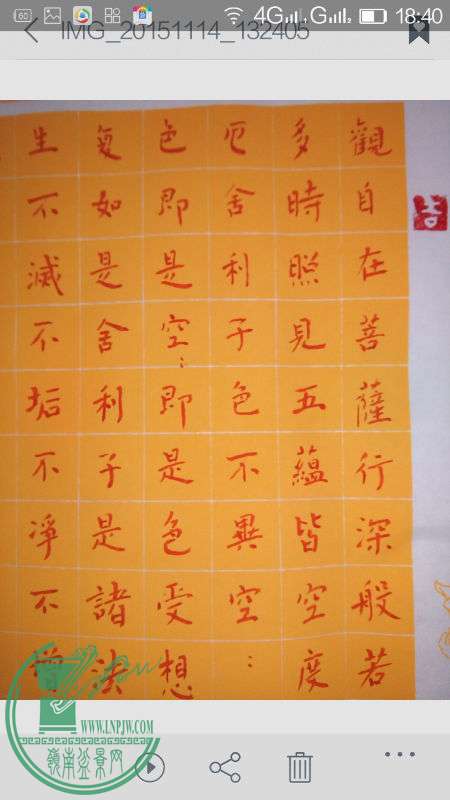 4G G 18:40
IMG_20151114_132405
觀自在菩薩行深般若
多時照見五蘊皆空度
厄舍利子色不異空:
色即是空:即是色受想
复如是舍利子是諸法
生不滅不垢不淨不
WWW.LNPJW.COM
嶺南盆景网